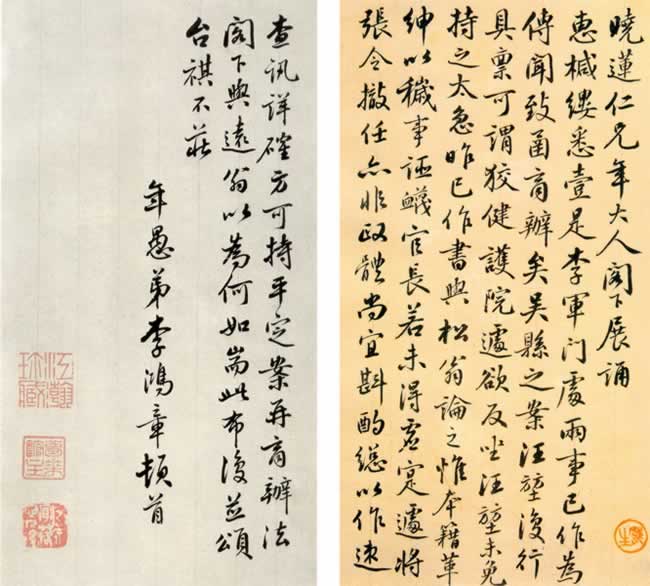 曉蓮仁兄年大人閣下展誦
惠椷縷悉壹是李軍門處兩事已作為
傳聞致函商辦矣吳縣之案汪堃復行
具稟可謂狡健護院遽欲反坐汪堃未免
持之太急昨已作書與松翁論之惟本籍革
紳以穢事誣衊官長若未得虛寔遽將
張令撤任亦非政體尚宜斟酌總以作速
查訊詳確方可持平定案再商辦法
閣下與遠翁以為何如耑此布復並頌
台祺不莊
年愚弟李鴻章頓首